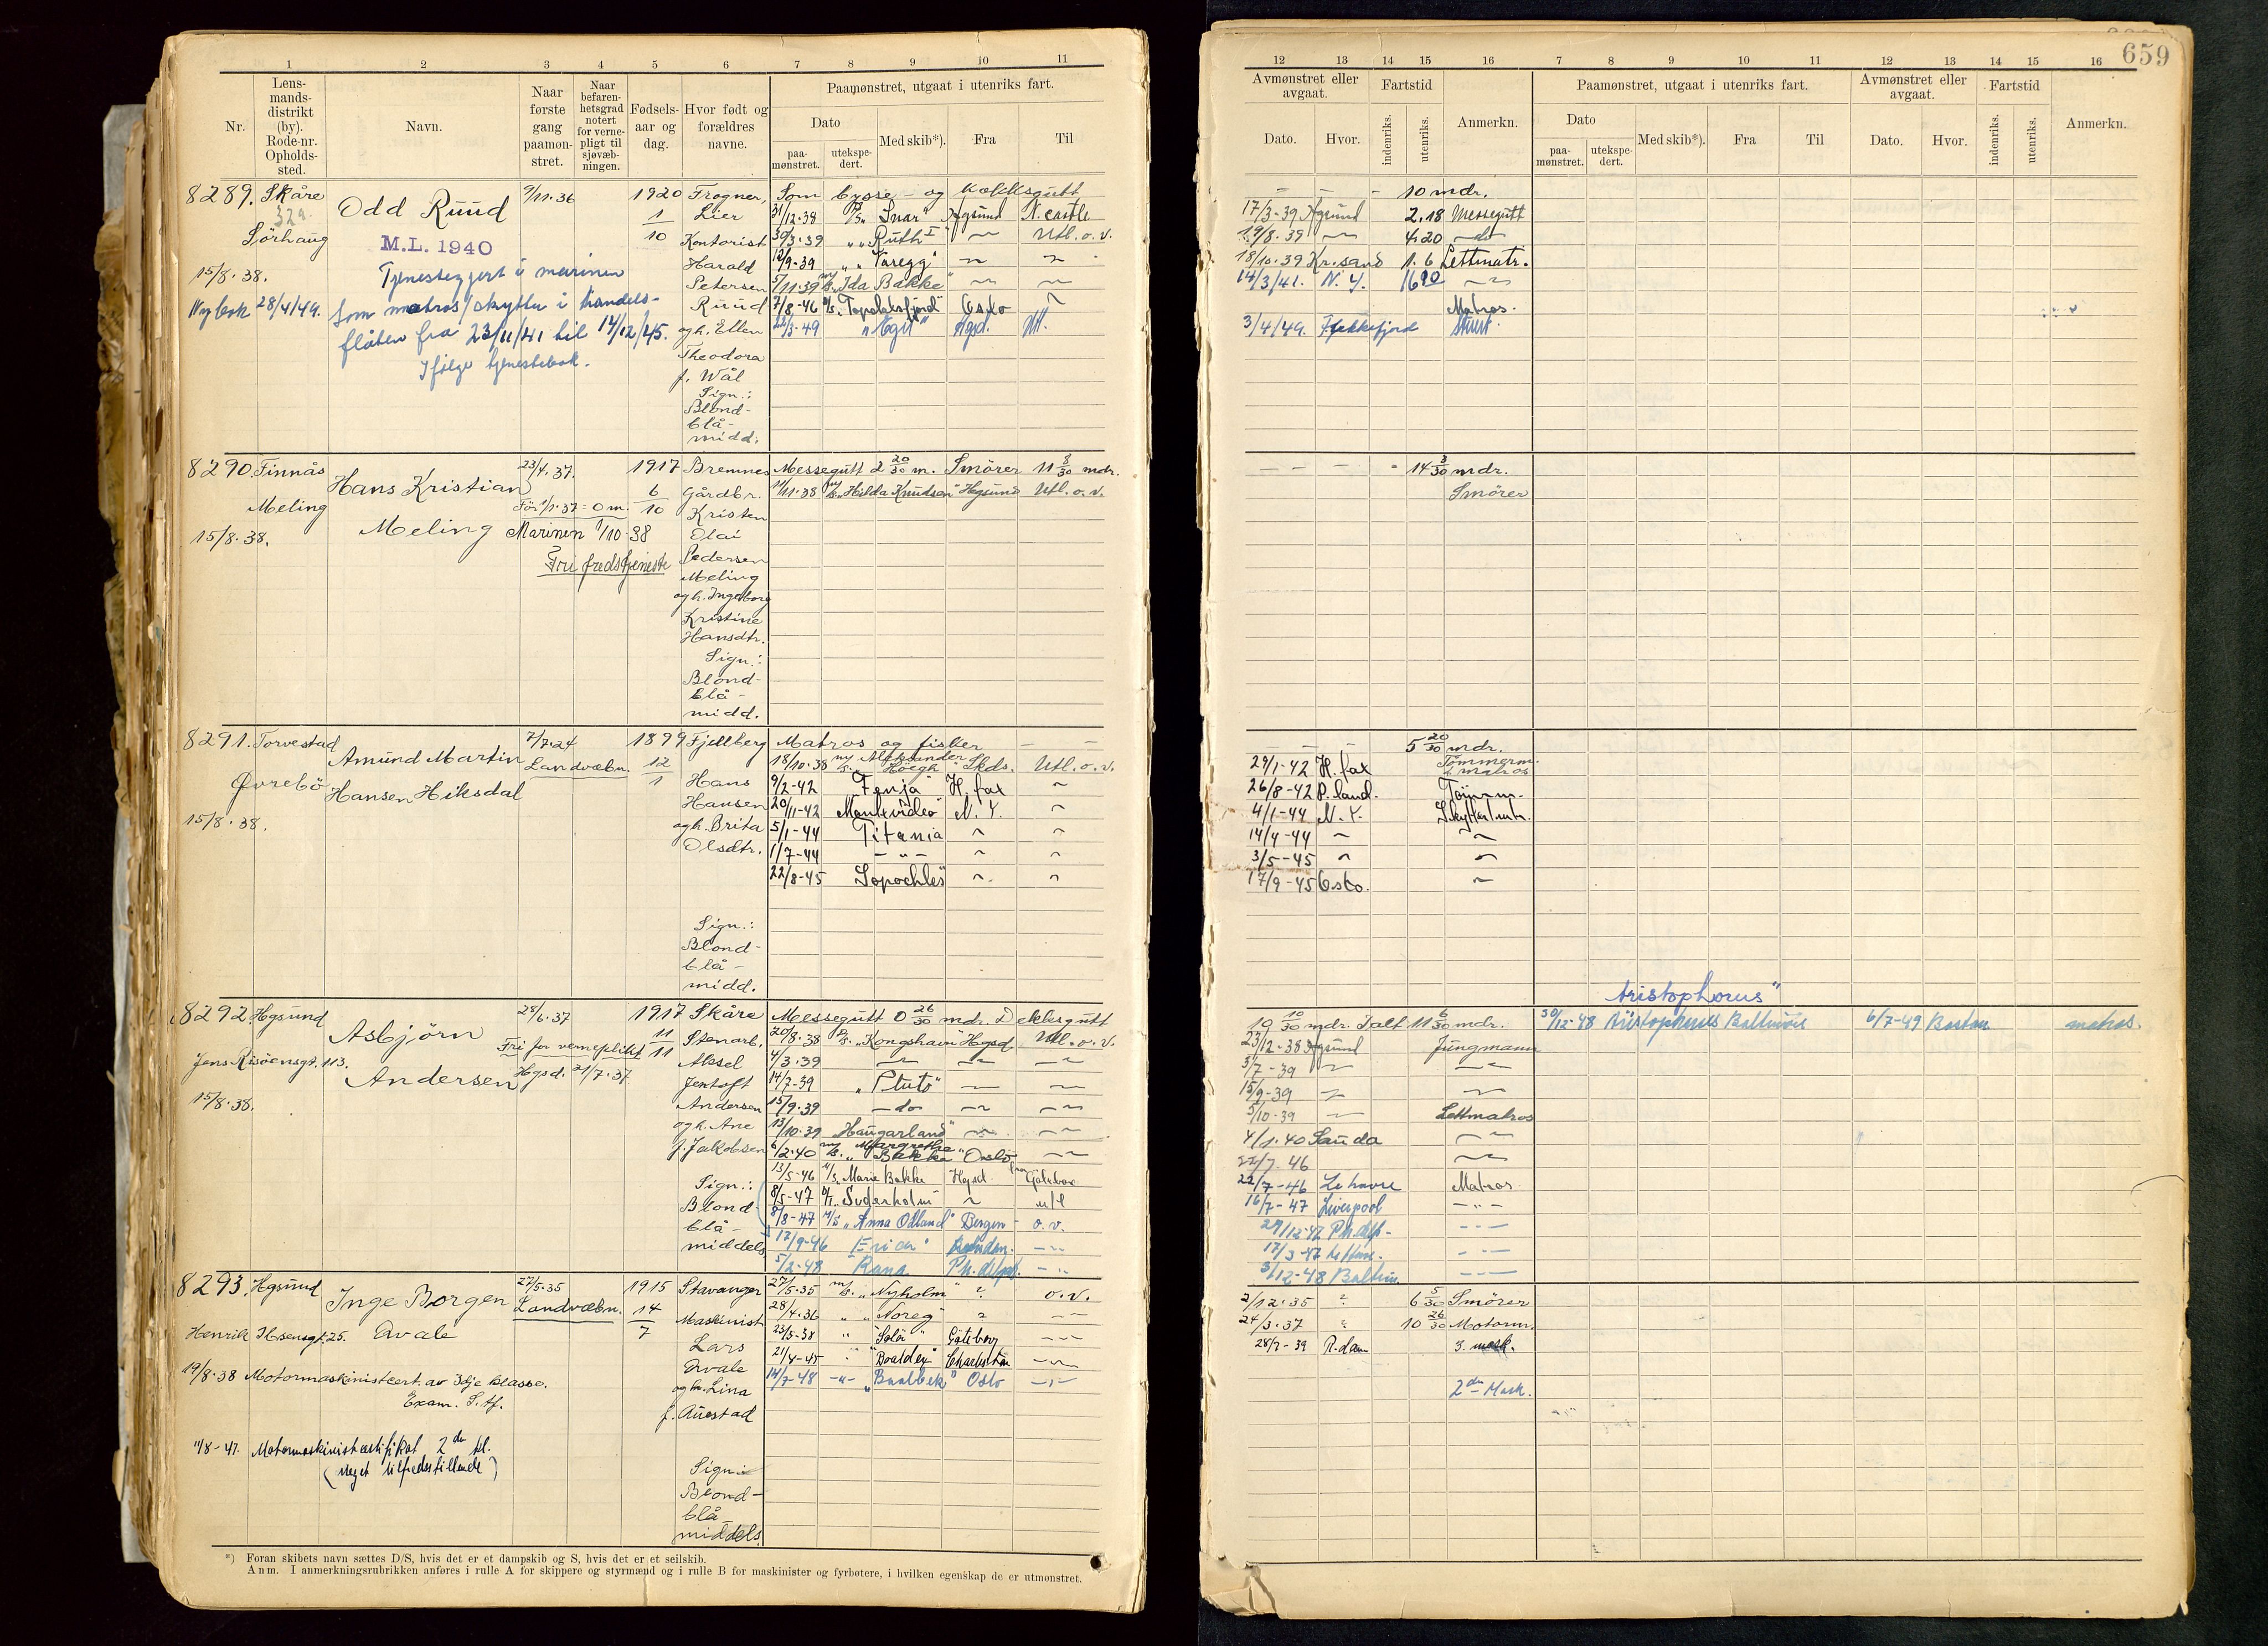 659
1 2 3 4 5 6 7 8 9 10 11
Nr.
Lens-
mands-
distrikt
(by).
Rode-nr.
Opholds-
sted.
Navn.
Naar
første
gang
paamøn-
stret.
Naar
befaren-
hetsgrad
notert
for verne-
pligt til
sjøvæb-
ningen.
Fødsels-
aar og
dag.
Hvor født og
forældres
navne.
Paamønstret, utgaat i utenriks fart.
Dato
paa-
mønstret.
utekspe-
dert.
Med skib*).
Fra
Til
12 13 14 15 16 7 8 9 10 11 12 13 14 15 16
Avmønstret eller
avgaat.
Dato.
Hvor.
Fartstid
indenriks.
utenriks.
Anmerkn.
Paamønstret, utgaat i utenriks fart.
Dato
paa-
mønstret.
utekspe-
dert.
Med skib*).
Fra
Til
Avmønstret eller
avgaat.
Dato.
Hvor.
Fartstid
indenriks.
utenriks.
Anmerkn.
8289. Skåre
Sörhaug
15/8.38.
Nybok 28/4/49.
Odd Ruud
M.L. 1940
Tjenestegjort i marinen
som matros/skytter i handels-
flåten fra 23/11/41 til 14/12/45.
Ifølge tjenestebok.
9/11.36
1920
1
10
Frogner,
Lier
Kontorist
Harald
Petersen
Ruud
og h. Ellen
Theodora
f. Wål
Sign.:
Blond-
blå-
midd.
Som bysse- og kokksgutt
31/12.38 "Snar" Hgsund N.castle
30/3.39 " "Ruth I" Utl. o. v.
12/9.39 " "Varegg"
5/11.39 "Ida Bakke"
7/8-46 "Topdalsfjord" Oslo
22/3-49 "Egil" Hgsd. Utl.
- - - 10 mdr.
17/3-39 Hgsund 2.18 Messegutt
19/8.39 4.20 do
18/10.39 Kr.sand 1.6 Lettmatr.
14/3/41. N.Y.
Matros.
3/4/49. Flekkefjord
8290. Finnås
Meling
15/8.38.
Hans Kristian
Meling
23/4.37.
Før 1/1.37 = 0 m.
Marinen 1/10-38
Fri fredstjeneste
1917
6
10
Bremnes
Gårdbr.
Kristen
Olai
Pedersen
Meling
og h. Ingeborg
Kristine
Hansdtr.
Sign.:
Blond-
blå-
midd.
Messegutt 2 20/30 m. Smörer 11 8/30 mdr.
11/11.38 "Hilda Knudsen" Hgsund Utl. o. v.
- - - - 14 3/30 mdr.
Smörer
8291. Torvestad
Øvrebö
15/8.38.
Amund Martin
Hansen Hiksdal
7/7.24
Landvæbn.
1899
12
1
Fjellberg
Hans
Hansen
og h. Brita
Olsdtr.
Sign.:
Blond-
blå-
midd.
Matros og fisker - -
18/10.38 "Aleksander Höegh" Skds. Utl. o. v.
9/2-42 "Fenja" H.fax
20/11-42 "Montevideo" N.Y.
5/1-44 Titania
1/7-44 - " -
22/8-45
- - - 5 20/30 mdr.
29/1-42 H.fax Tømmerm.
matros
26/8-42 P.land. Tömm.
4/1-44 N.Y.
14/4-44
3/5-45
17/9-45 Oslo.
8292. Hgsund
Jens Risöensgt. 113.
15/8.38.
Asbjörn
Andersen
28/6.37
Fri for verneplikt
Hgsd. 21/7.37
1917
11
11
Skåre
Stenarb.
Aksel
Jentoft
Andersen
og h. Ane
f. Jakobsen
Sign.:
Blond-
blå-
middels
Messegutt 0 26/30 mdr. Dekksgutt
20/8.38 "Kongshavn" Hgsd Utl. o. v.
4/3.39
14/7-39 "Pluto"
15/9.39 -do-
13/10.39 "Haugarland"
6/2.40 "Margrethe Bakke" Oslo
13/5-46 Marie Bakke Hgsd.
8/5-47 Suderholm
8/8-47 "Anna Odland" Bergen - o. v.
17/9-46
5/2-48 Rana
19 10/30 mdr. Ialt 11 6/30 mdr.
23/12-38 Hgsund Jungmann
3/7-39
15/9-39
5/10-39 Lettmatros
4/1.40 Sauda
22/7.46
22/7-46 Le havre Matros
16/7-47 Liverpool - " -
29/12-47
17/3-47
3/12-48
Aristophorus"
30/12-48 6/7-49 Boston matros.
8293. Hgsund
Henrik Ibsensgt. 25.
Inge Borgen
Avale
27/5.35
Landvæbn.
1915
14
7
19/8.38 Motormaskinistcert. av 3dje klasse.
Exam. S. tf.
11/8-47. Motormaskinistcertifikat 2den kl.
(Meget tilfredstillende)
Stavanger
Maskinist
Lars
Avale
og h. Lina
f. Auestad
Sign:
Blond-
blå-
middels.
27/5.35 "Nyholm" o. v.
28/4.36 " "Noreg"
23/5-38 " "Sola" Göteborg
21/4-45 Charleston
14/7-48 -"- "Baalbek" Oslo
2/12.35 6 5/30 Smörer
24/3.37 10 26/30 Motorm.
28/7-39 R.dam 3. mask.
2den Mask.
*) Foran skibets navn sættes D/S, hvis det er et dampskib og S, hvis det er et seilskib.
Anm. I anmerkningsrubrikken anføres i rulle A for skippere og styrmænd og i rulle B for maskinister og fyrbøtere, i hvilken egenskap de er utmønstret.